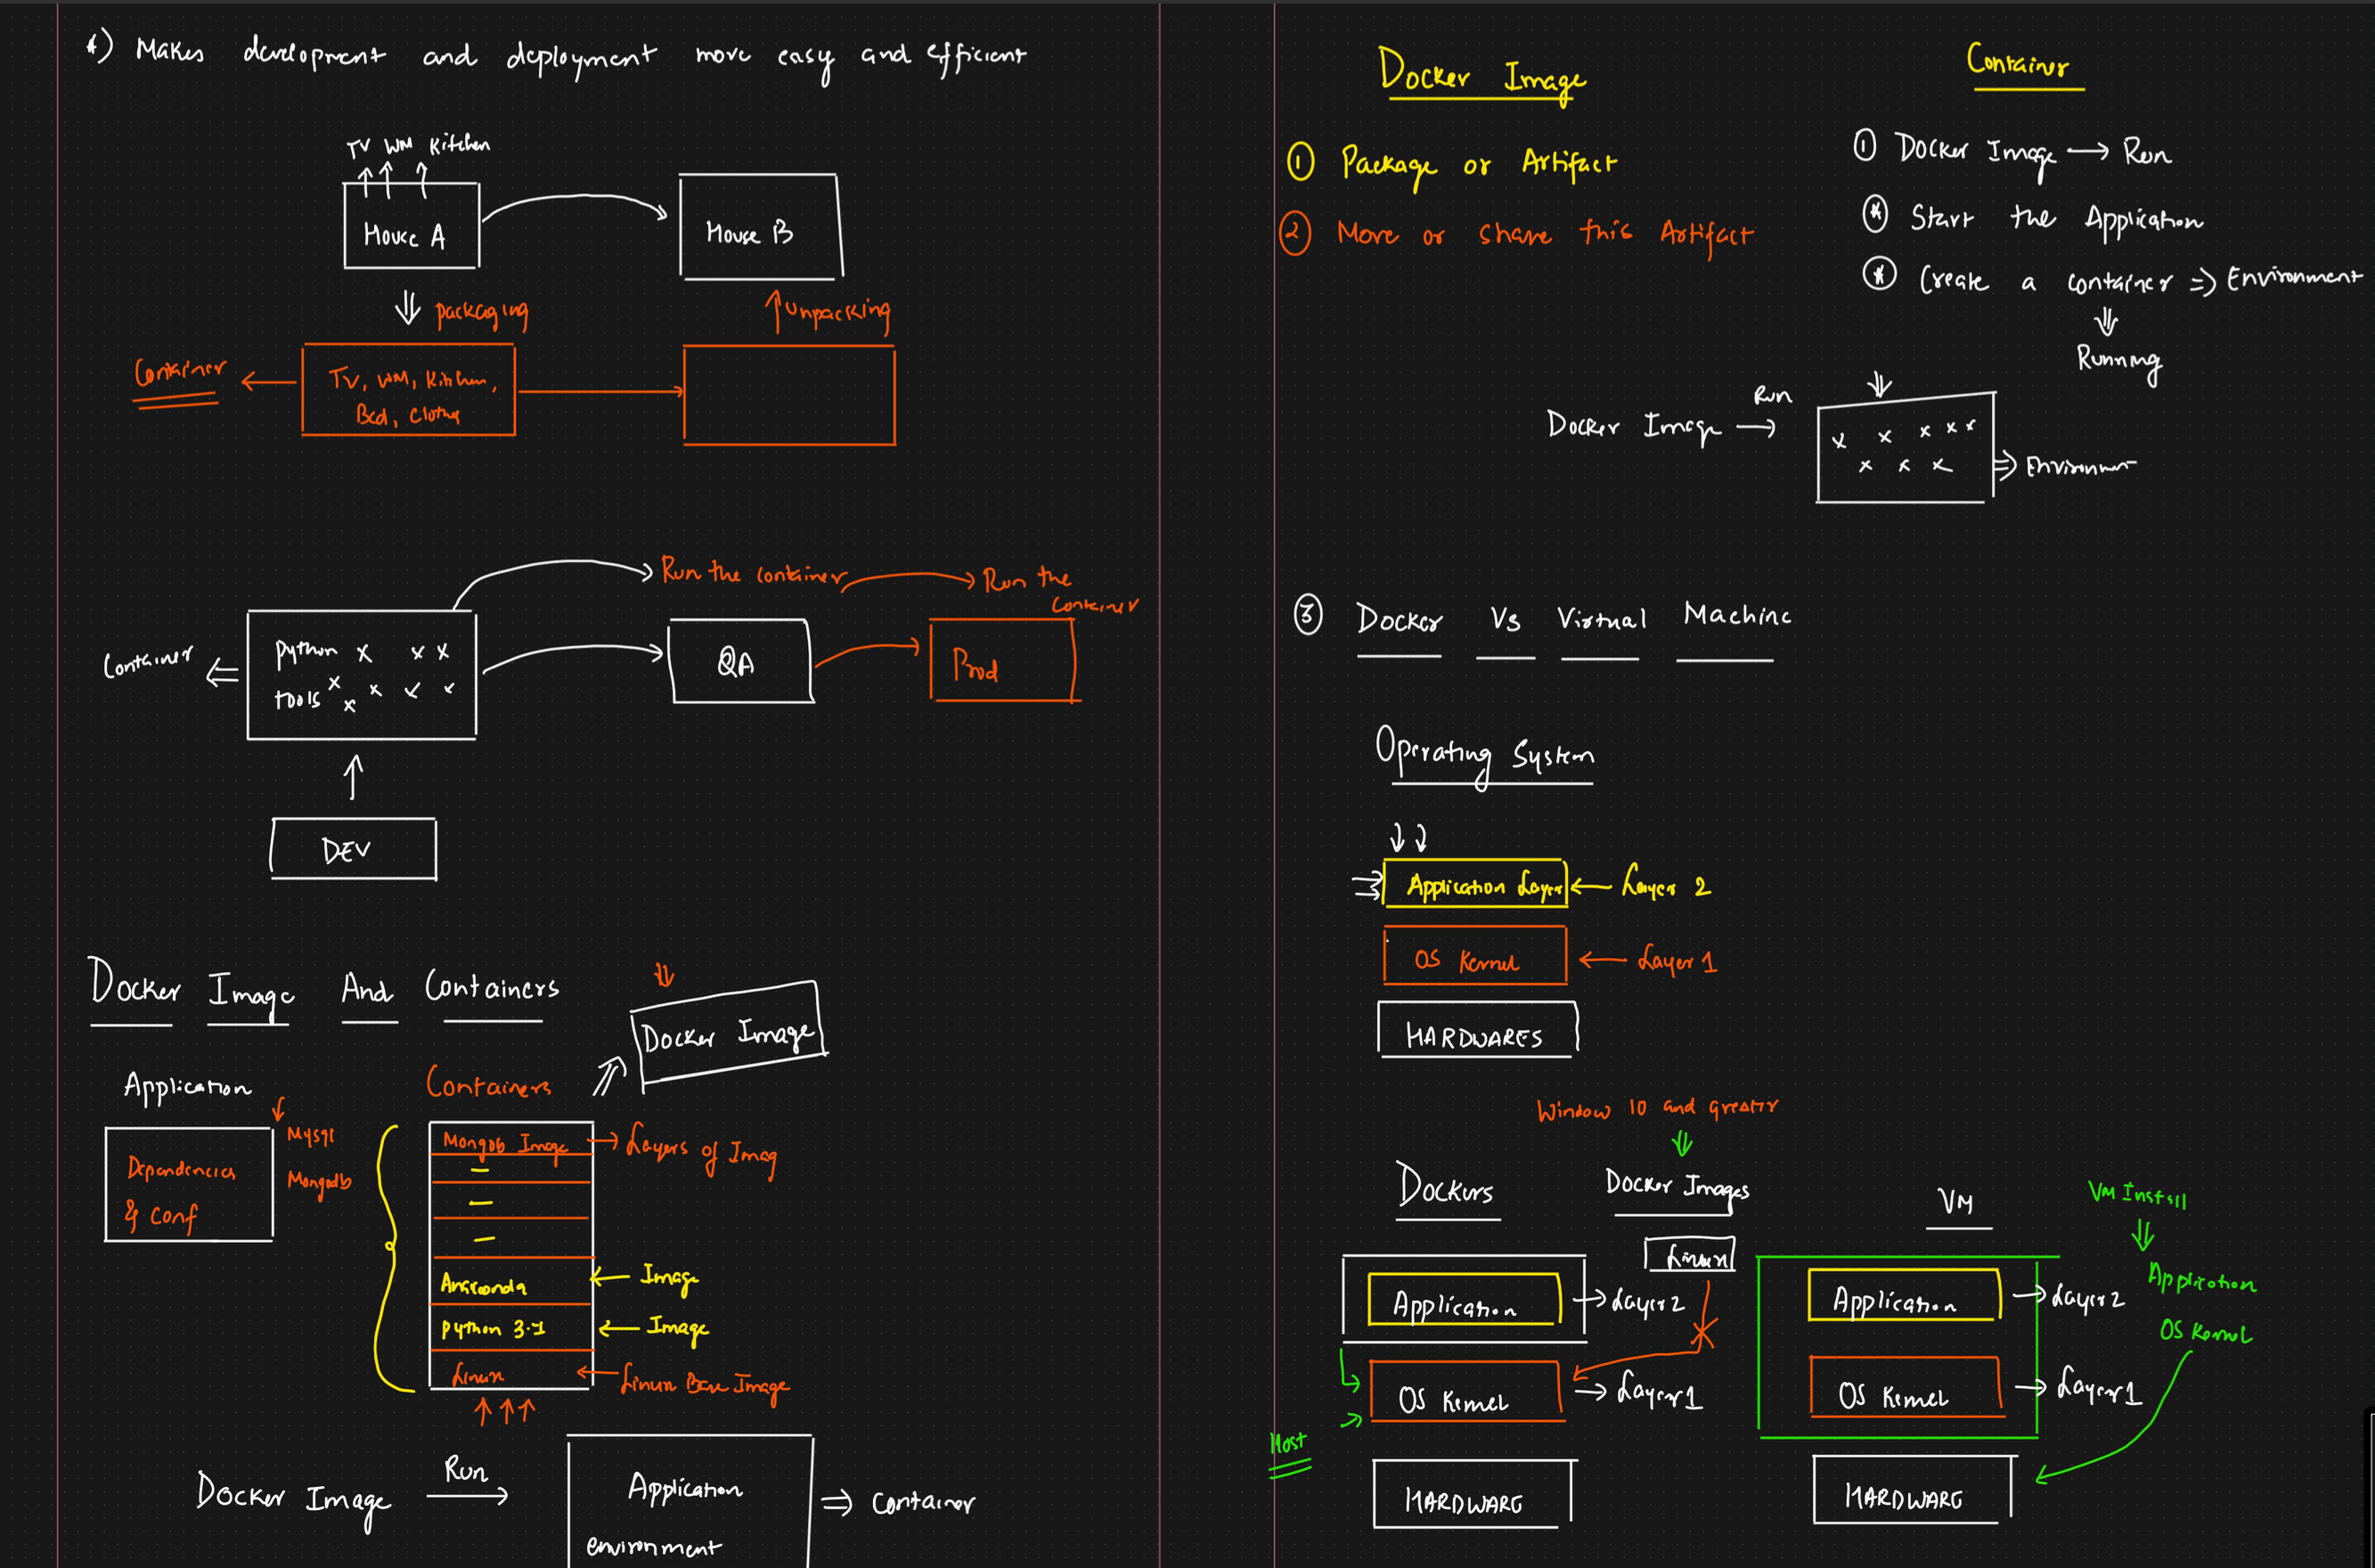 *) Makes development and deployment more easy and efficient
TV WM Kitchen
House A
House B
packaging
unpacking
Container
TV, WM, Kitchen,
Bed, Clothe
Run the container
Run the
Container
Container
python x x x
tools x x x x x
QA
Prod
DEV
Docker Image And Containers
Docker Image
Application
Containers
Mysql
Mongodb
Dependencies
& Conf
Mongodb Image
Layers of Imag
Anaconda
Image
python 3.1
Image
Linux
Linux Base Image
Docker Image
Run
Application
environment
Container
Docker Image
① Package or Artifact
② Move or share this Artifact
Container
① Docker Image → Run
* Start the Application
* Create a container ⇒ Environment
Running
Docker Image
Run
x x x x x
x x x
Environment
③ Docker Vs Virtual Machine
Operating System
Application Layer
Layer 2
OS Kernel
Layer 1
HARDWARES
Window 10 and greater
Dockers
Docker Images
VM
VM Install
Linux
Application
Layer 2
Application
Layer 2
Application
OS Kernel
OS Kernel
Layer 1
OS Kernel
Layer 1
Host
HARDWARE
HARDWARE